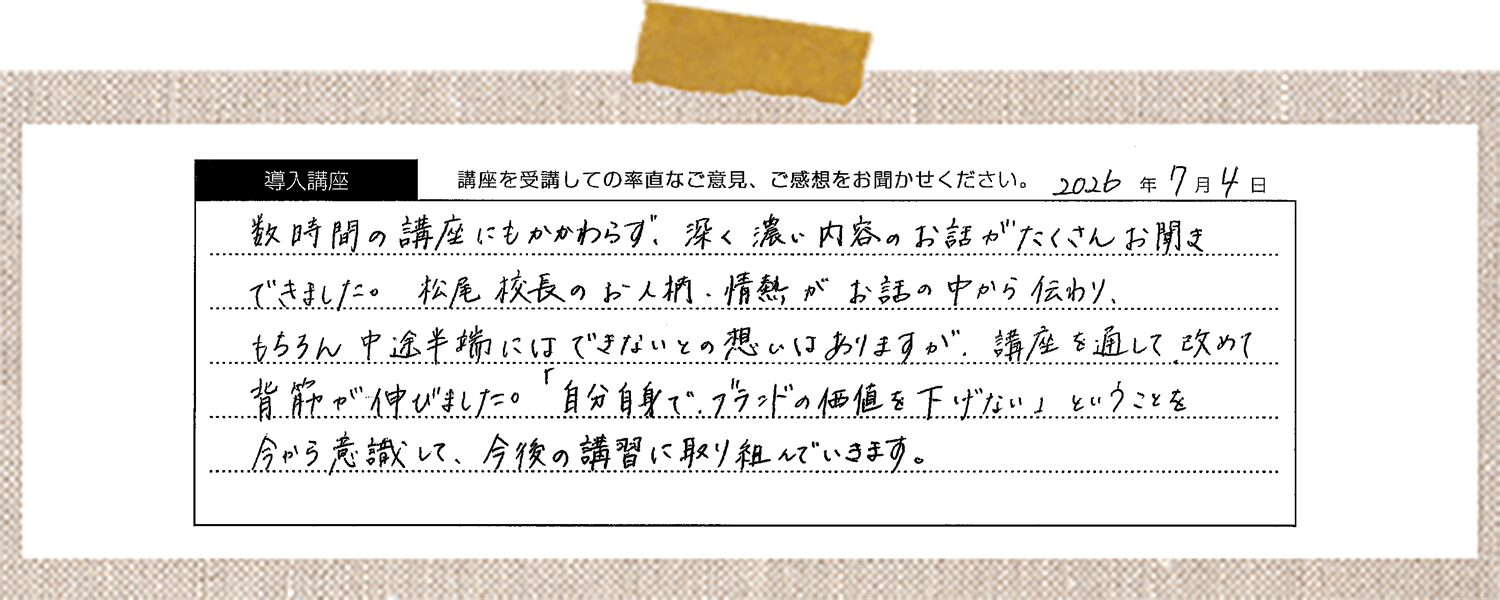 導入講座
講座を受講しての率直なご意見、ご感想をお聞かせください。 2026年7月4日
数時間の講座にもかかわらず、深く濃い内容のお話がたくさんお聞き
できました。 松尾校長のお人柄、情熱がお話の中から伝わり、
もちろん中途半端にはできないとの想いはありますが、講座を通して改めて
背筋が伸びました。「自分自身で、ブランドの価値を下げない」ということを
今から意識して、今後の講習に取り組んでいきます。